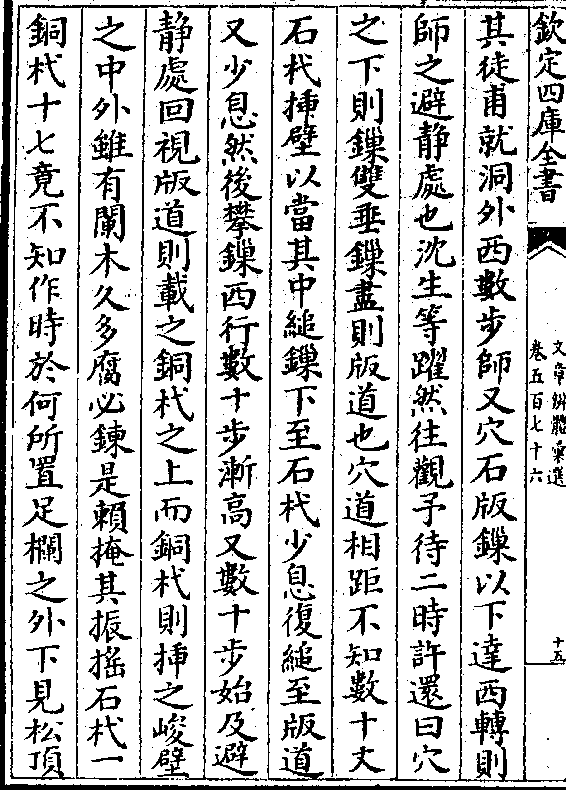 欽定四庫全書
文章辨體彙選
卷五百七十六
十五
其徒甫就洞外西數步師又穴石版鏁以下達西轉則
師之避静處也沈生等躍然往觀予待二時許還曰穴
之下則鏁雙垂鏁盡則版道也穴道相距不知數十丈
石杙揷壁以當其中縋鏁下至石杙少息復縋至版道
又少息然後攀鏁西行數十步漸高又數十步始及避
静處回視版道則載之銅杙之上而銅杙則揷之峻壁
之中外雖有闌木久多腐必鍊是賴掩其振搖石杙一
銅杙十七竟不知作時於何所置足欄之外下見松頂